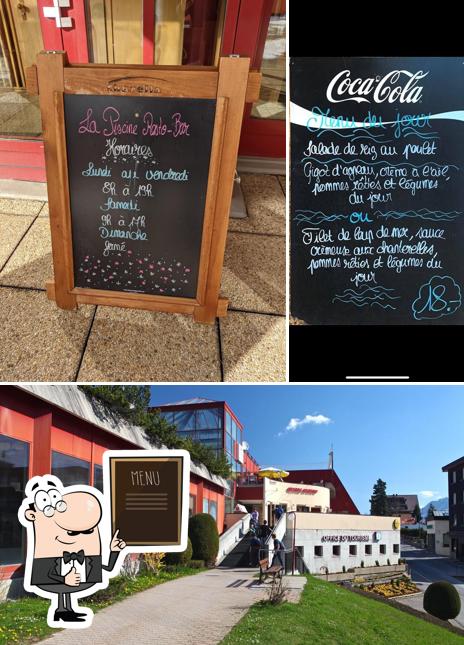 La Piscine Resto-Bar
Horaires
Lundi au vendredi
8h à 19h
Samedi
9h à 17h
Dimanche
fermé
Coca-Cola
Menu du jour
Salade de riz au poulet
Gigot d'agneau, crème à l'ail,
pommes rôties et légumes
du jour
ou
Filet de loup de mer, sauce
crémeuse aux chanterelles,
pommes rôties et légumes du
jour
18.-
MENU
OFFICE DU TOURISME